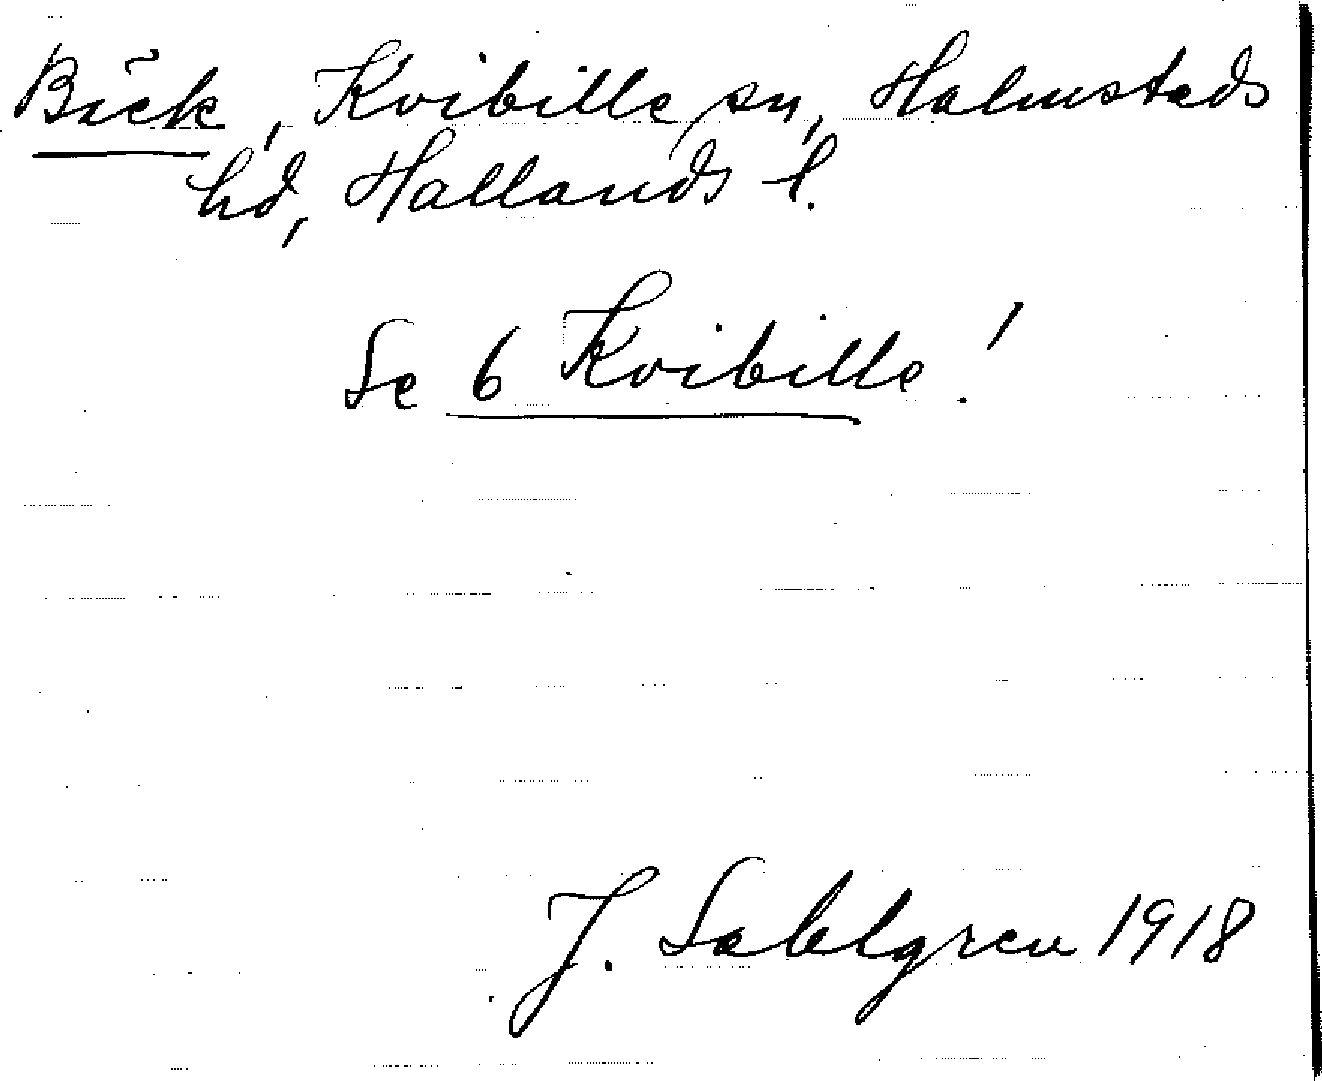 Bäck, Kvibille sn, Halmstads
hd, Hallands l.
Se 6 Kvibille!
J. Sahlgren 1918